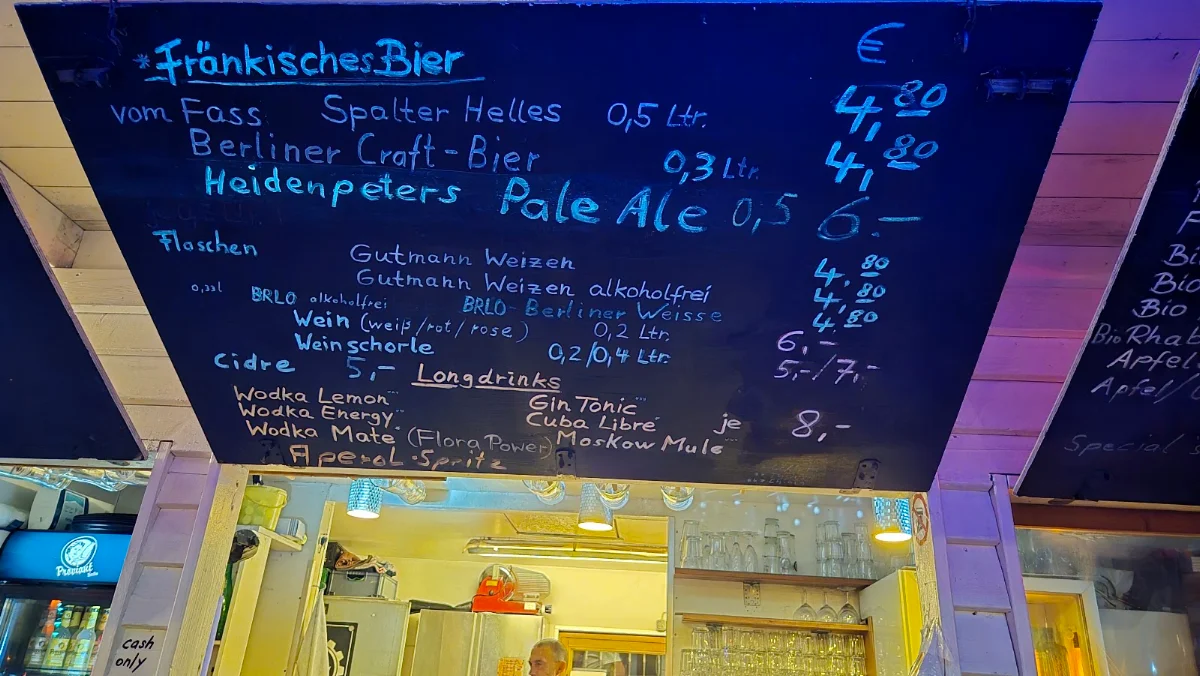 *Fränkisches Bier €
vom Fass Spalter Helles 0,5 Ltr. 4,80
Berliner Craft-Bier 0,3 Ltr. 4,80
Heidenpeters Pale Ale 0,5 6.-
Flaschen
Gutmann Weizen 4,80
Gutmann Weizen alkoholfrei 4,80
0,33l BRLO alkoholfrei BRLO-Berliner Weisse 4,80
Wein (weiß/rot/rose) 0,2 Ltr. 6,-
Weinschorle 0,2/0,4 Ltr. 5,-/7,-
Cidre 5,-
Longdrinks
Wodka Lemon Gin Tonic
Wodka Energy Cuba Libré je 8,-
Wodka Mate (Flora Power) Moskow Mule
Aperol-Spritz
Bio
Bio
Bio Rhab
Apfel
Apfel/
Special
Proviant
cash
only